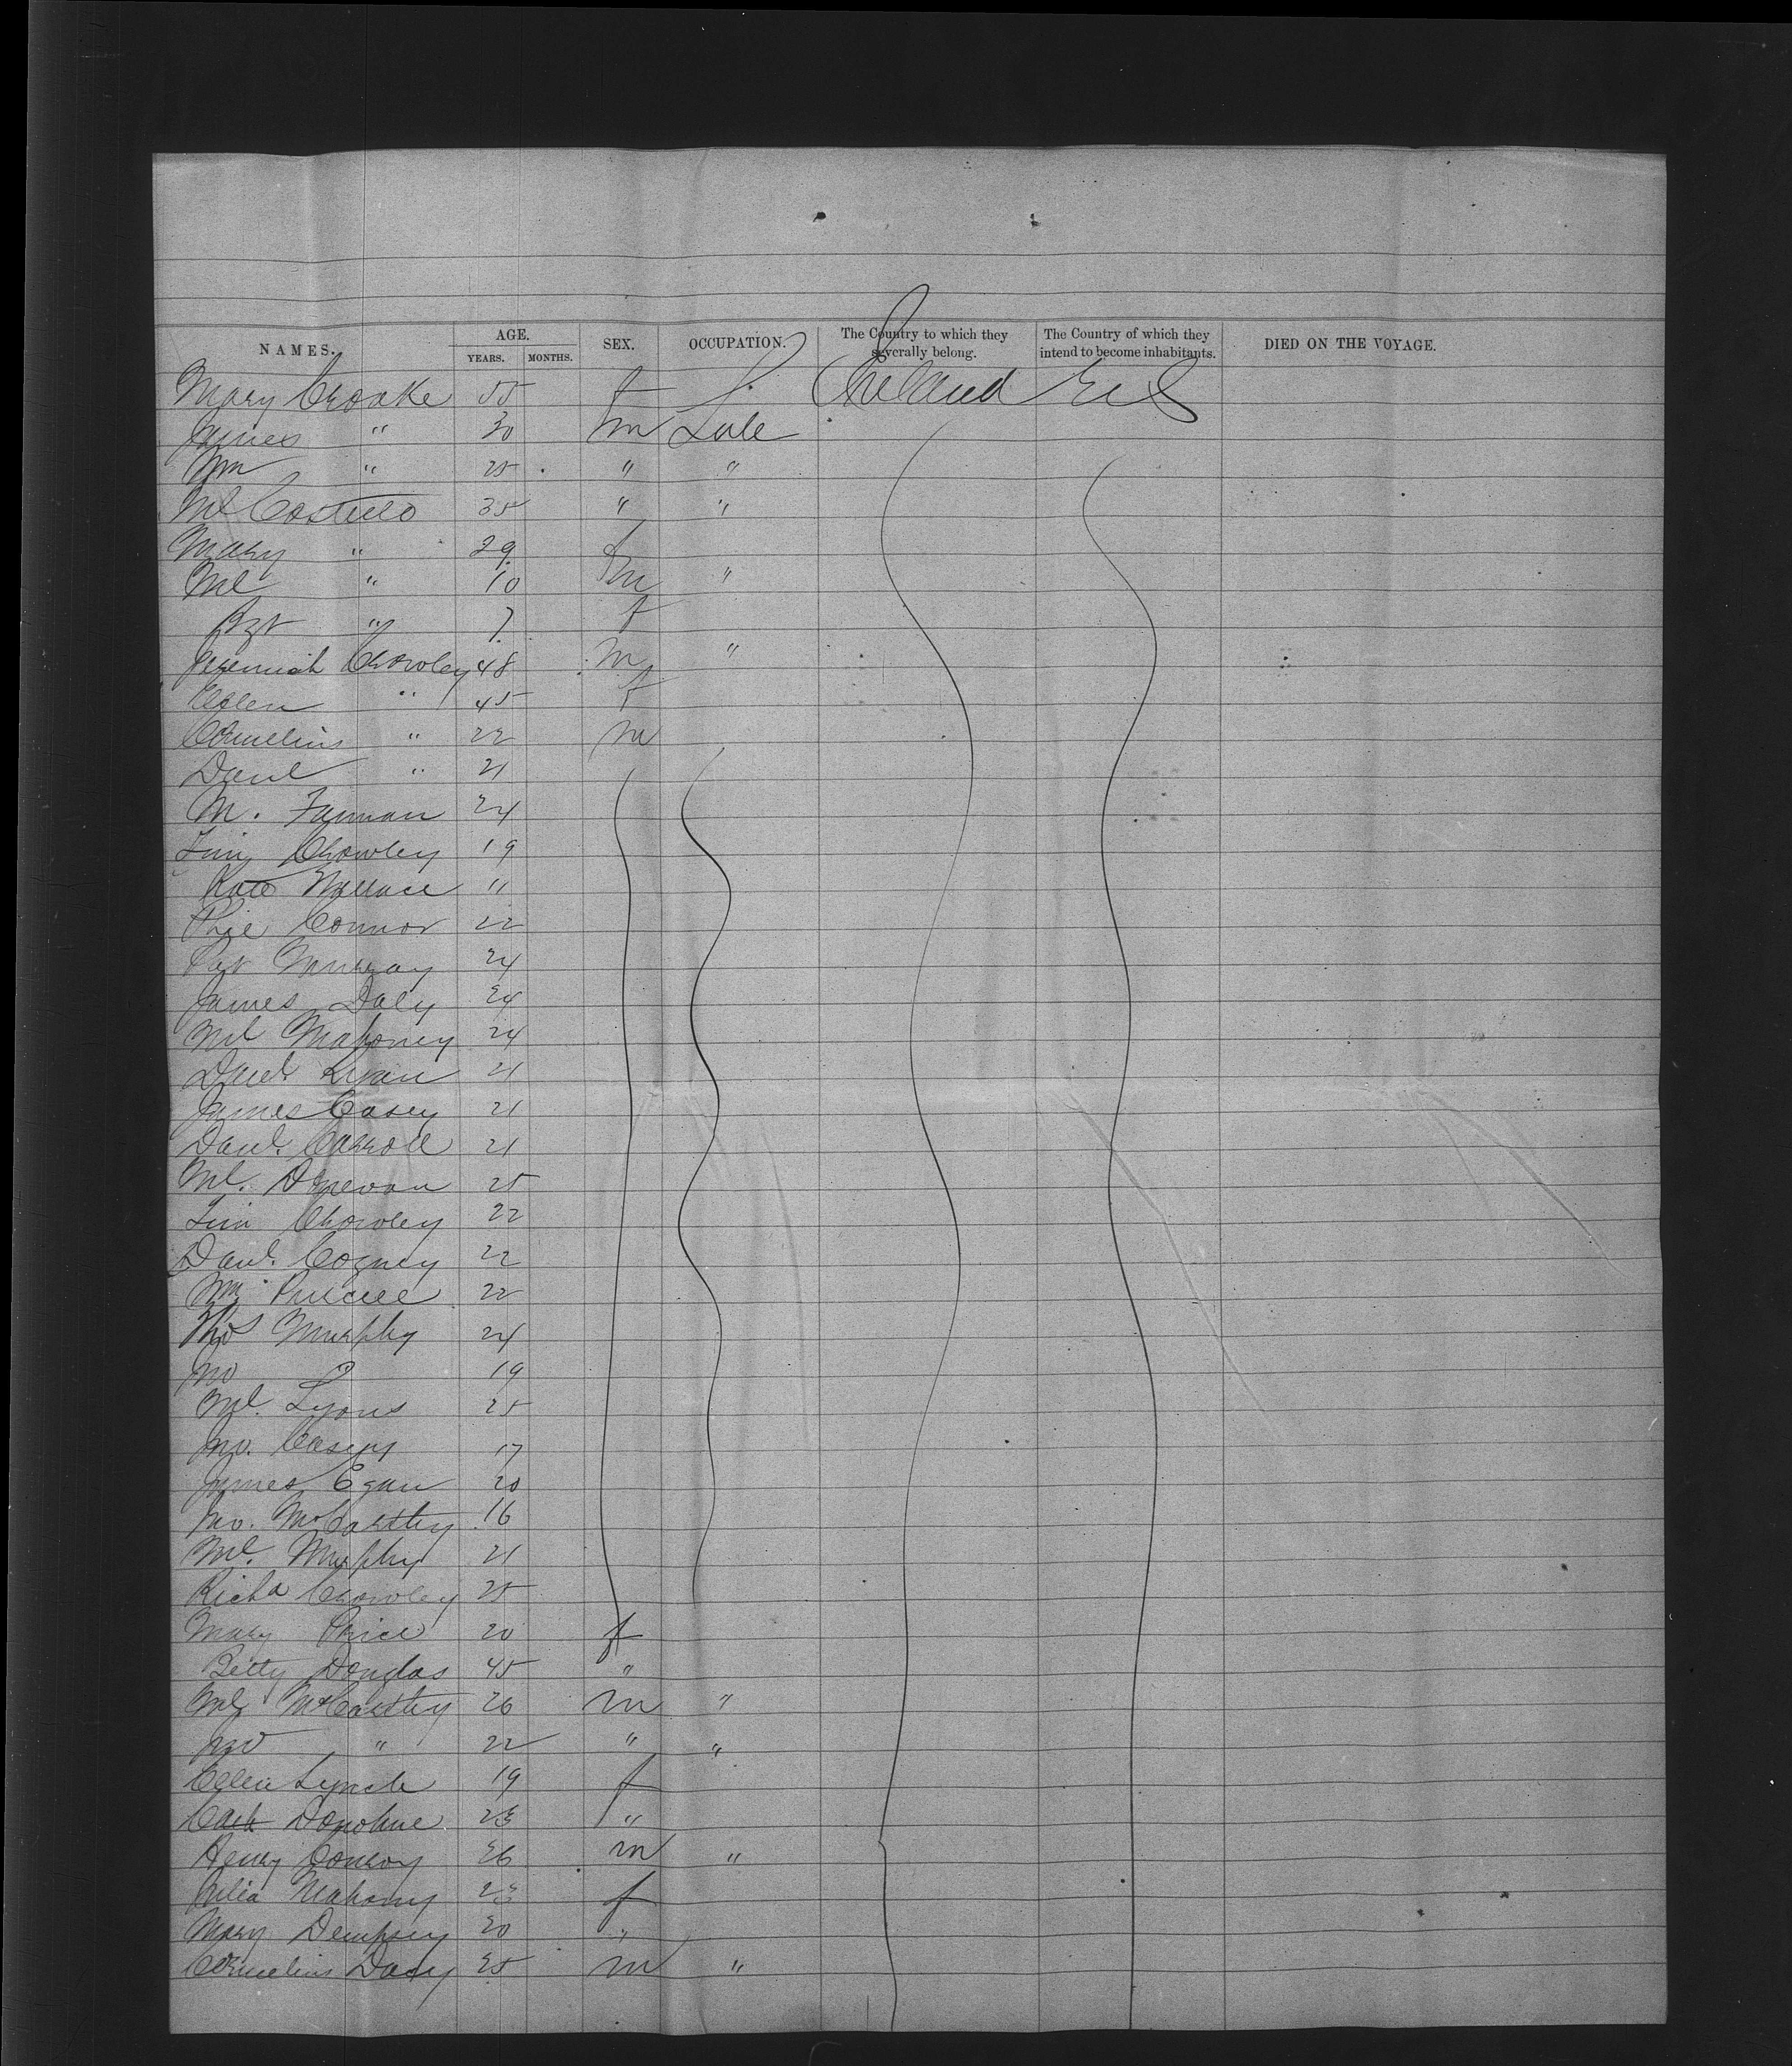 NAMES. AGE. YEARS. MONTHS. SEX. OCCUPATION. The Country to which they severally belong. The Country of which they intend to become inhabitants. DIED ON THE VOYAGE.
Mary Croake 55 f Ireland
James " 30 m
Wm " 25 " "
Ml Costello 35 " "
Mary " 29 f
Ml " 10 m "
Bgt " 7 f
Jeremiah Crowley 48 m "
Ellen " 45 f
Cornelius " 22 m
Danl " 21
M. 24
Tim Crowley 19
Kate Wallace 11
Connor 22
Pat Murray 24
James Daly 24
Ml Mahoney 24
Danl. Ryan 21
James Casey 21
Danl. Carroll 21
Ml. Donevan 25
Tim Crowley 22
Danl. Cogney 22
Wm 22
Thos Murphy 24
Jno 19
Ml. Lyons 25
Jno. Casey 17
James Egan 20
Jno. McCarthy 16
Ml. Murphy 21
Richd Crowley 25
Mary Price 20 f
Betty Douglas 45 "
Ml McCarthy 26 m "
Jno " 22 " "
Ellen Lynch 19 f
Cath Donohue 23 "
Henry Conroy 26 m "
Julia Mahony 23 f
Mary Dempsey 20 "
Cornelius Dacy 25 m "